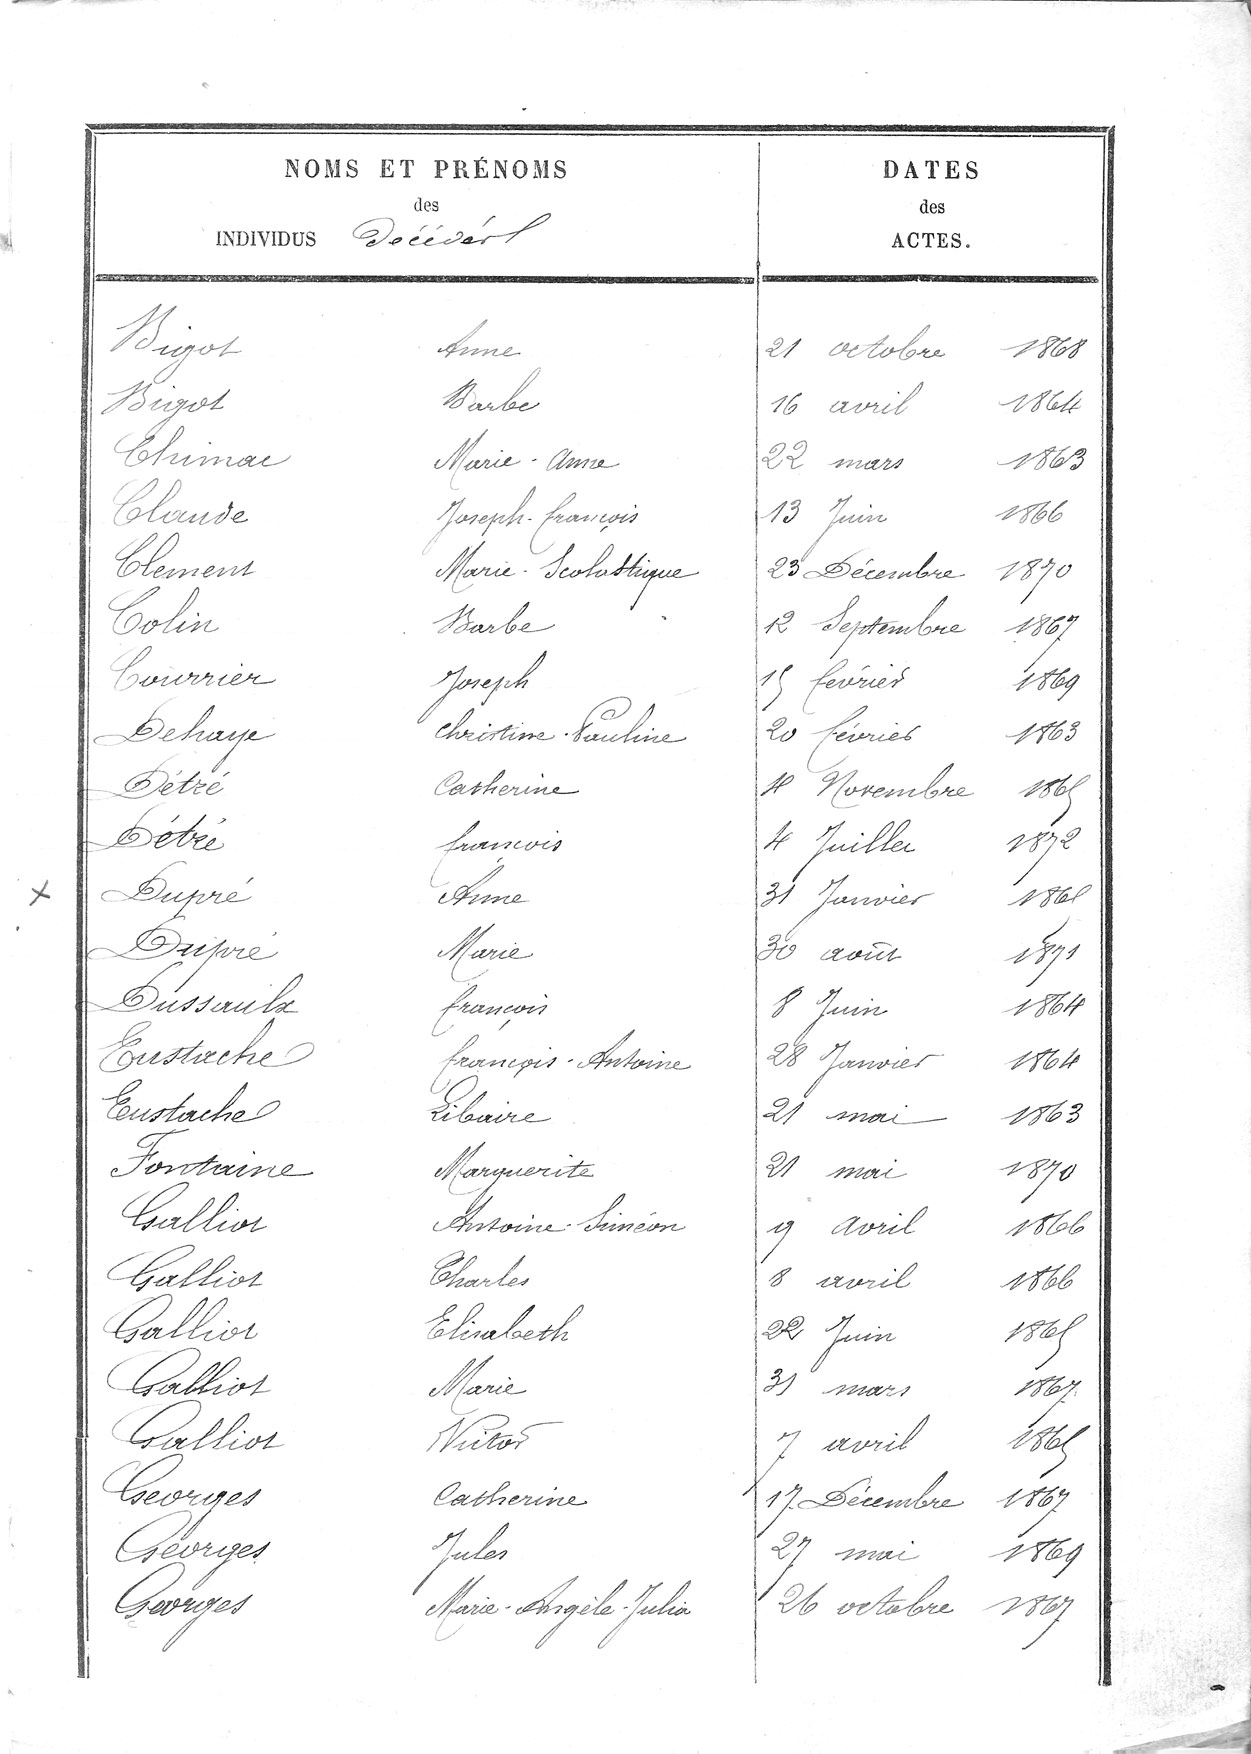 NOMS ET PRÉNOMS
des
INDIVIDUS Décédés
DATES
des
ACTES.
Bigot Anne 21 octobre 1868
Bigot Barbe 16 avril 1864
Chimac Marie-Anne 22 mars 1863
Claude Joseph-François 13 Juin 1866
Clement Marie-Scolastique 23 Décembre 1870
Colin Barbe 12 Septembre 1867
Courrier Joseph 15 février 1869
Dehaye Christine-Pauline 20 février 1863
Détré Catherine Novembre 1865
Détré françois 4 Juillet 1872
X Dupré Anne 31 Janvier
Dupré Marie 30 août 1871
Dussaulx françois 8 Juin 1864
Eustache françois-Antoine 28 Janvier 1864
Eustache Libaire 21 mai 1863
Fontaine Marguerite 21 mai 1870
Galliot Antoine-Siméon 9 avril 1866
Galliot Charles 8 avril 1866
Galliot Elisabeth 22 Juin 1865
Galliot Marie 31 mars 1867
Galliot Victor 7 avril 1865
Georges Catherine 17 Décembre 1867
Georges Jules 27 mai 1869
Georges Marie-Angèle-Julia 26 octobre 1867